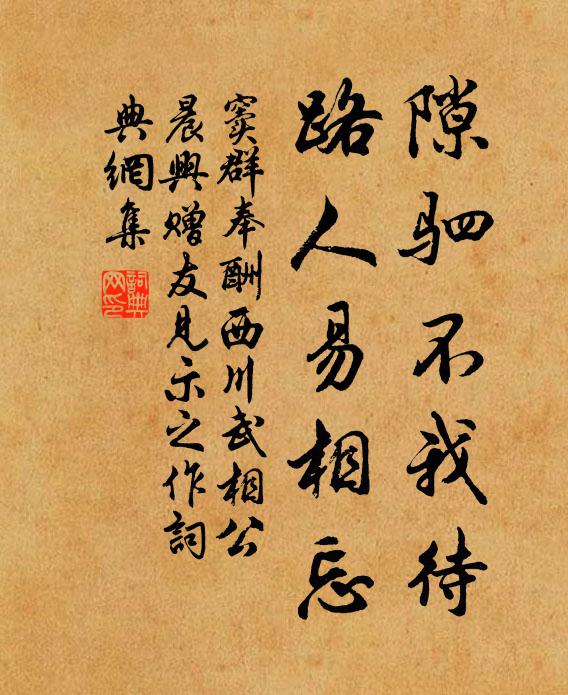 隙駟不我待
路人易相忘
竇群奉酬西川武相公
晨興贈友見示之作詞
典網集
詞典
网印